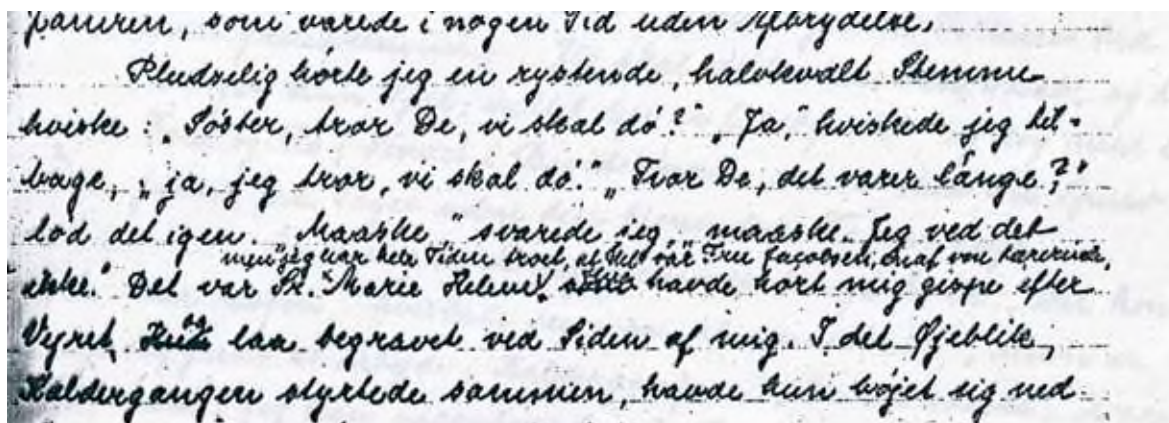 som varede i nogen Tid uden Afbrydelse.
Pludselig hørte jeg en rystende, halvkvalt Stemme
hviske: „Søster, tror De, vi skal dø?" „Ja," hviskede jeg til-
bage, „ja, jeg tror, vi skal dø." „Tror De, det varer længe?"
lød det igen. „Maaske," svarede jeg, „maaske. Jeg ved det
men jeg har hele Tiden troet, at det var Fru Jacobsen, en af vore Lærerinder,
ikke." Det var Sr. Marie Helene, havde hørt mig gispe efter
Vejret, og laa begravet ved Siden af mig. I det Øjeblik,
Kældergangen styrtede sammen, havde hun bøjet sig ned